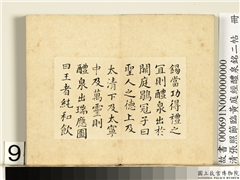 錫當功得禮之
宜則醴泉出於
闕庭鶡冠子曰
聖人之德上及
太清下及太寧
中及萬靈則
醴泉出瑞應圖
曰王者純和飲
故書000691N000000000
清張照節臨黃庭經醴泉銘二帖 冊
國立故宮博物院
9